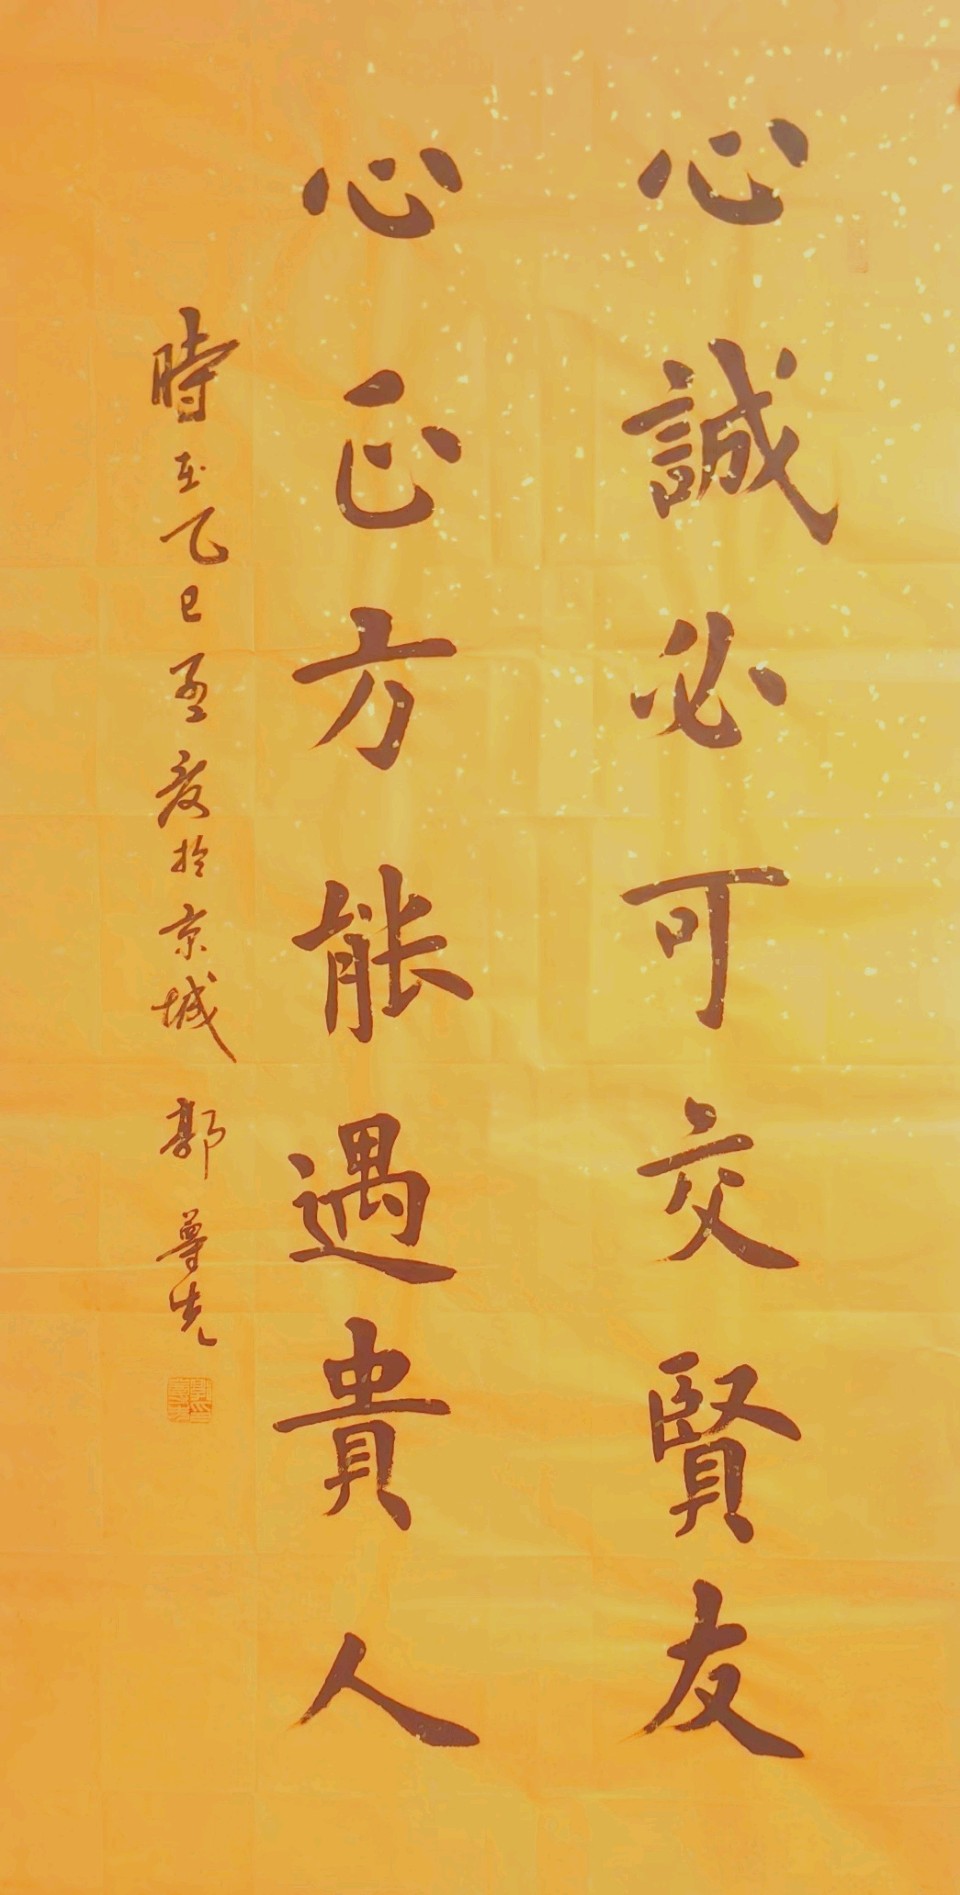 心誠必可交賢友
心正方能遇貴人
時在乙巳孟夏於京城 郭尊先